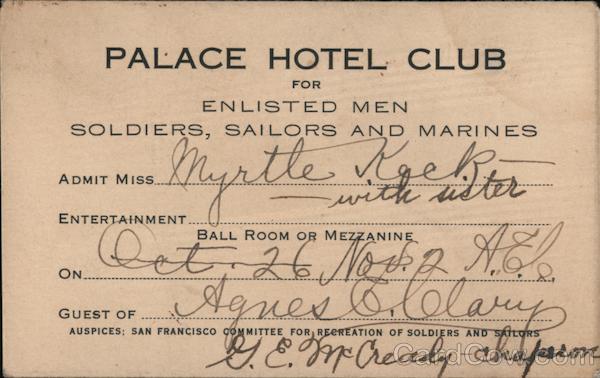 PALACE HOTEL CLUB
FOR
ENLISTED MEN
SOLDIERS, SAILORS AND MARINES
ADMIT MISS Myrtle Kock
with sister
ENTERTAINMENT
BALL ROOM OR MEZZANINE
ON Oct. 26 Nov. 2 A.E.C.
GUEST OF Agnes E. Clary
AUSPICES: SAN FRANCISCO COMMITTEE FOR RECREATION OF SOLDIERS AND SAILORS
G. E. McCready
CardCow.com